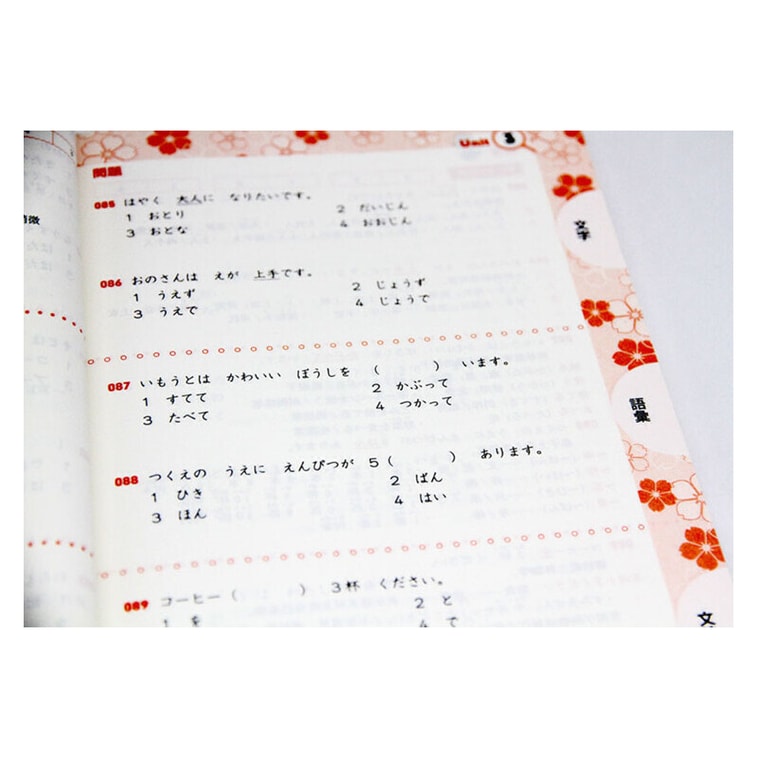 Unit
問題
085 はやく 大人に なりたいです。
1 おとり 2 だいじん
3 おとな 4 おおじん
086 おのさんは えが 上手です。
1 うえず 2 じょうず
3 うえで 4 じょうで
087 いもうとは かわいい ぼうしを ( ) います。
1 すてて 2 かぶって
3 たべて 4 つかって
088 つくえの うえに えんぴつが 5( ) あります。
1 ひき 2 ばん
3 ほん 4 はい
089 コーヒー( ) 3杯 ください。
1 を 2 と
4 で
文字
語彙
文